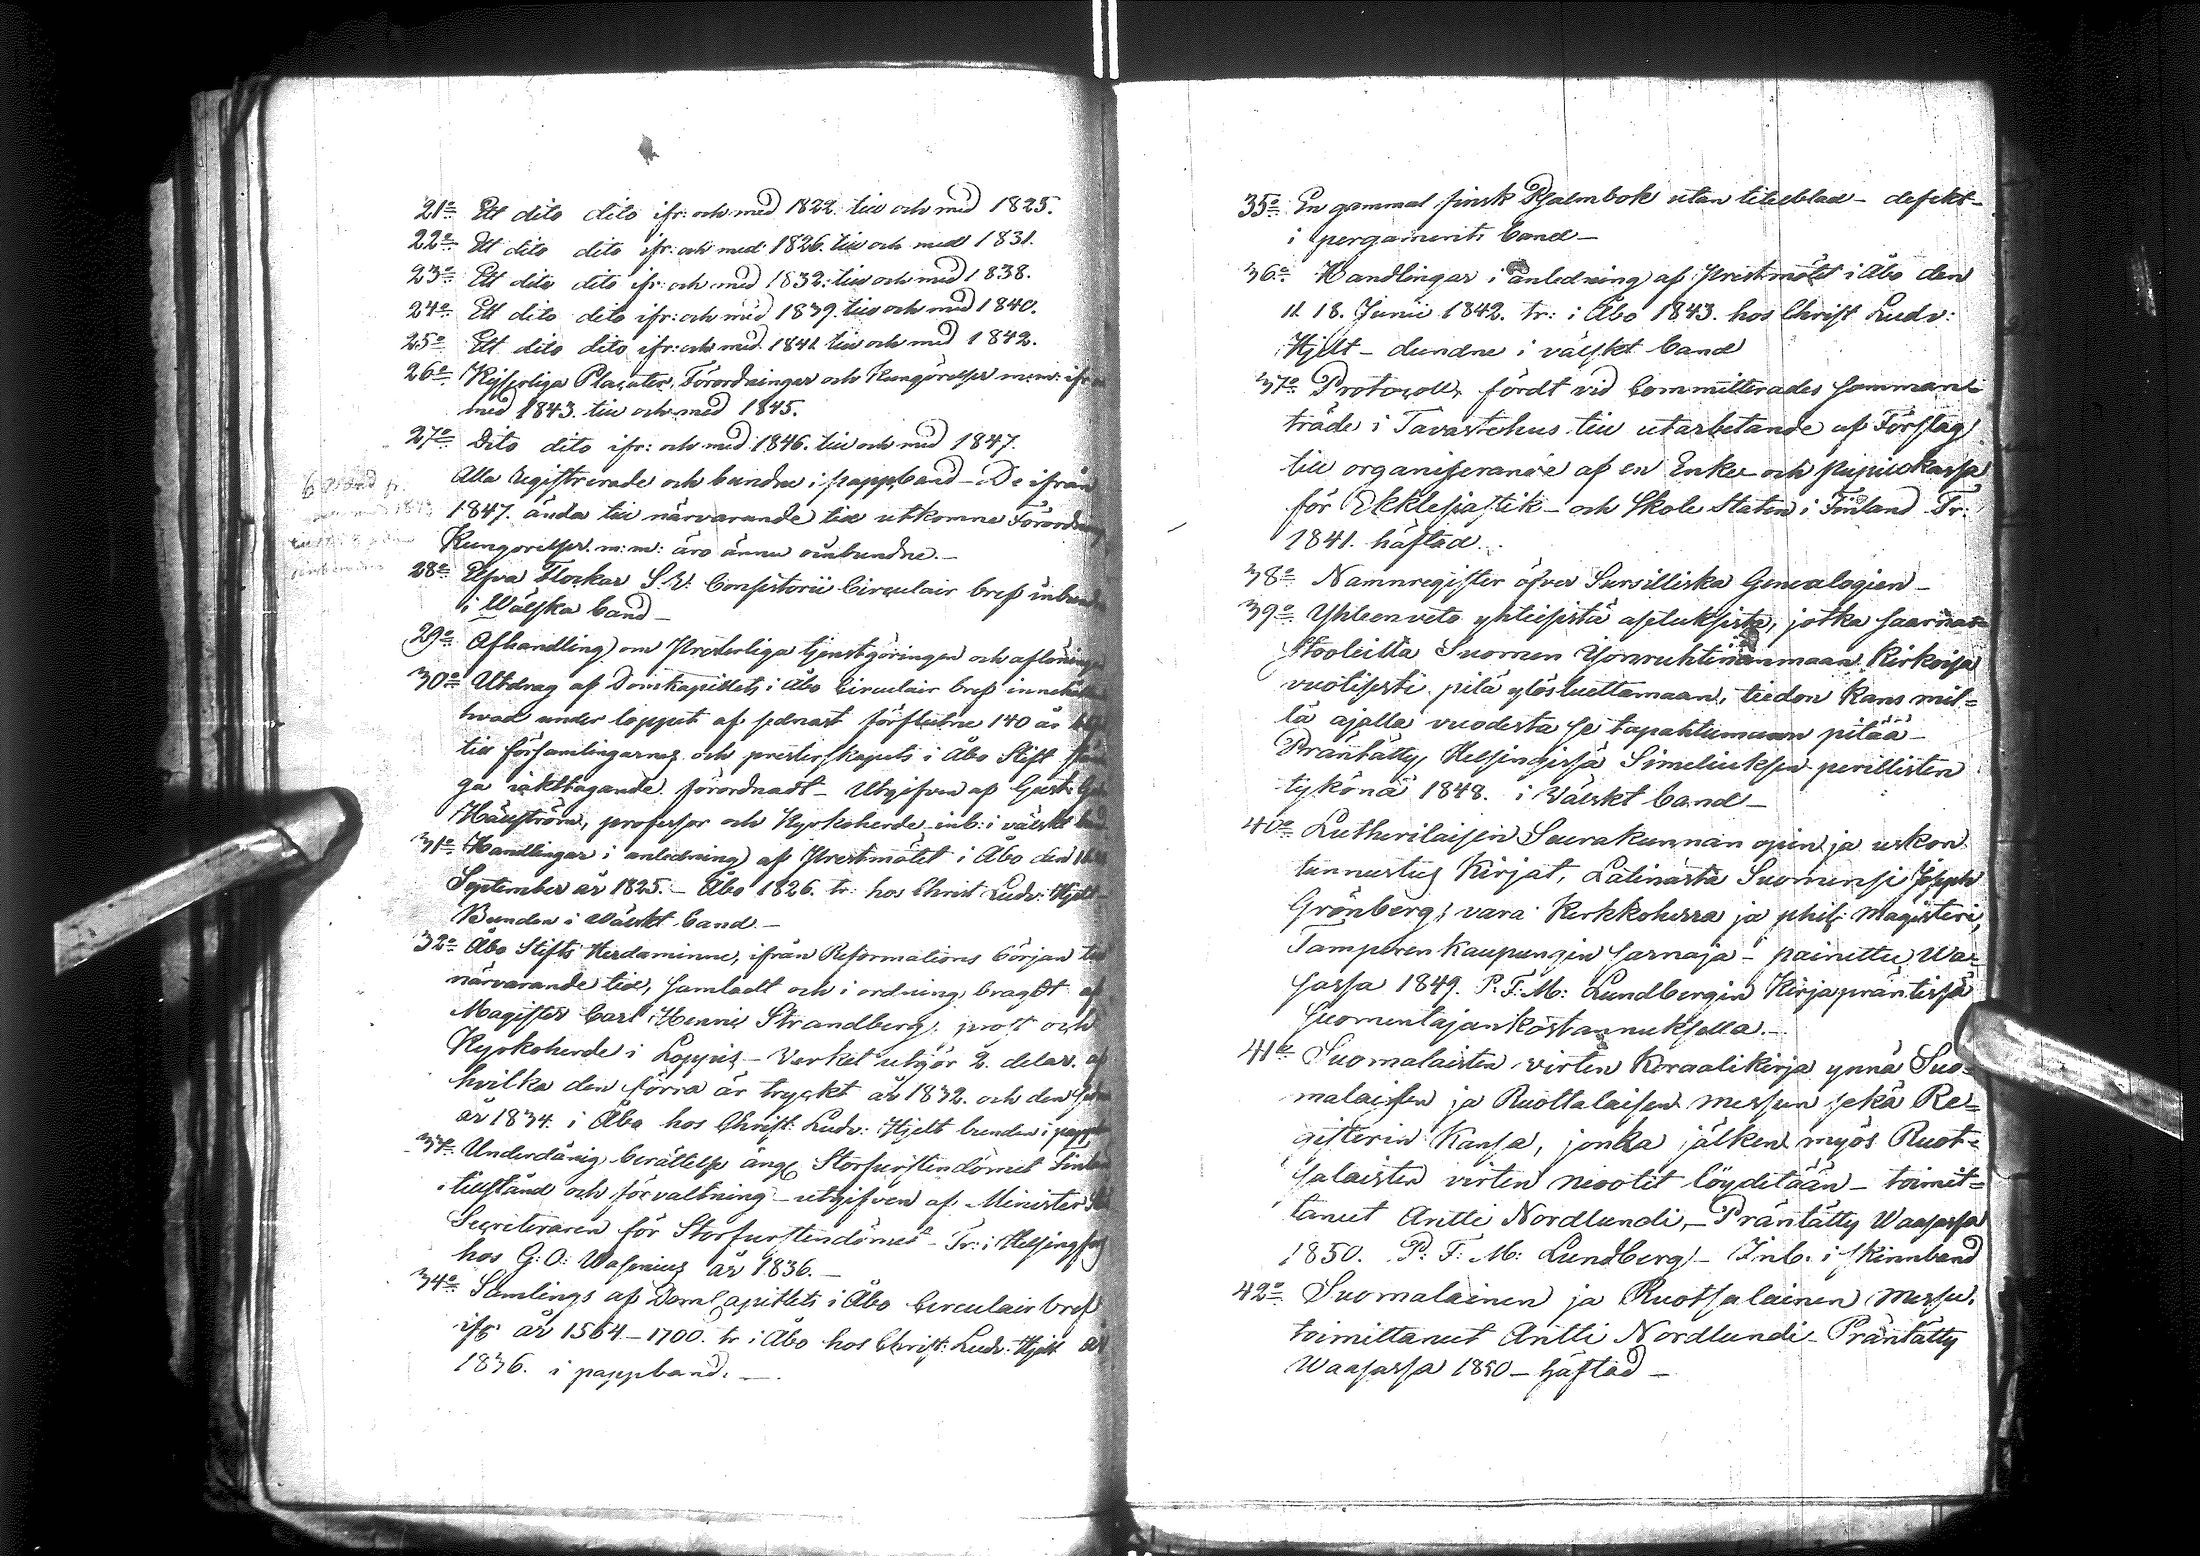 21o Ett dito dito ifr: och med 1822. till och med 1825.
22o Ett dito dito ifr: och med 1826. till och med 1831.
23o Ett dito dito ifr: och med 1832. till och med 1838.
24o Ett dito dito ifr: och med 1839. till och med 1840.
25o Ett dito dito ifr: och med 1841. till och med 1842.
26o Kejserliga Placater, Förordningar och Kungörelser m:m: ifr
med 1843. till och med 1845.
27o Dito dito ifr: och med 1846. till och med 1847.
Alla registrerade och bundne i pappband - De ifrån
1847. ända till närvarande tid utkomne Förordning
Kungörelser. m: m: äro ännu oinbundne. -
28o Elfva Flockar S. V. Consistorii Circulair bref inbundne
i Wälska band -
29o Afhandling om Presterliga tjenstgöringen och aflöning
30o Utdrag af Domkapitlets i Åbo Circulair bref innehåll
hvad under loppet af sednast förflutne 140 år
till församlingarnes och presterskapets i Åbo Stift
ga iakttagande förordnadt - Utgifven af Gust: Ga
Hällström, professor och Kyrkoherde inb: i välskt band
31o Handlingar i anledning af Prestmötet i Åbo den
September år 1825. - Åbo 1826. tr: hos Christ. Ludv: Hjelt -
Bunden i Wälskt band. -
32o Åbo Stifts Herdaminne, ifrån Reformations början till
närvarande tid, samladt och i ordning bragdt af
Magister Carl Henric Strandberg, prost och
Kyrkoherde i Loppis - Verket utgör 2. delar. af
hvilka den förra är tryckt år 1832. och den
år 1834. i Åbo hos Christ: Ludv: Hjelt bunden i papp
Underdånig berättelse ang: Storfurstendömet Finlands
tillstånd och förvaltning - utgifven af Minister
Secreteraren för Storfurstendömet - Tr: i Helsingfors
hos G: O: Wasenius år 1836. -
34o Samlings af DomCapitlets i Åbo Circulair bref
ifr: år 1564 - 1700. tr i Åbo hos Christ: Ludv: Hjelt år
1836. i pappband. -
35o En gammal finsk Psalmbok utan titelblad - defekt -
i pergaments band -
36o Handlingar i anledning af Prestmötet i Åbo den
11. 18. Junii 1842. tr: i Åbo 1843. hos Christ Ludv:
Hjelt - bundne i välskt band
37o Protocoll, fördt vid Committerades samman-
träde i Tavastehus till utarbetande af Förslag
till organiserande af en Enke- och pupillkassa
för Ekklesiastik- och Skole Staten i Finland Tr:
1841. häftad.
38o Namnregister öfver Sursilliska Genealogien -
39o Yhteenveto yhteisistä asetuksista, jotka saarna-
stooleilta Suomen Isonruhtinanmaan Kirkoisa
vuotisesti pitä ylösluettamaan, tiedon kans mil-
lä ajalla vuodesta se tapahtumaan pitää -
Präntätty, Helsingissä Simeliuksen perillisten
tykönä 1848. i Välskt band -
40o Lutherilaisen Seurakunnan opin ja uskon
tunnustus Kirjat, Latinasta Suomensi Joseph
Grönberg, vara Kirkkoherra ja phil: Magisteri,
Tamperen Kaupungin sarnaja - painettu Wa-
sassa 1849. P: F: M: Lundbergin Kirjapräntissä
Suomentajan kostannuksella. -
41o Suomalaisten virten Koraalikirja ynnä Suo-
malaisen ja Ruottalaisen messun sekä Re-
gisterin Kansa, jonka jälken myös Ruot-
salaisten virten nuotit löydetään - toimit-
tanut Antti Nordlundi, - Präntätty Waasassa
1850. P: F: M: Lundberg - Inb. i skinnband
42o Suomalainen ja Ruotsalainen Messu,
toimittanut Antti Nordlundi - Präntätty
Waasassa 1850 - häftad -